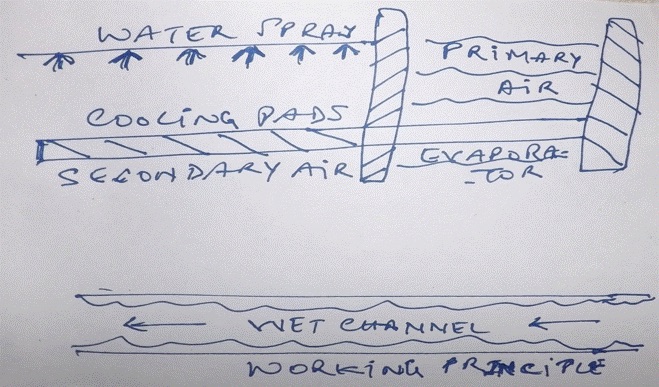 WATER SPRAY
PRIMARY
AIR
COOLING PADS
SECONDARY AIR
EVAPORA-
-TOR
WET CHANNEL
WORKING PRINCIPLE